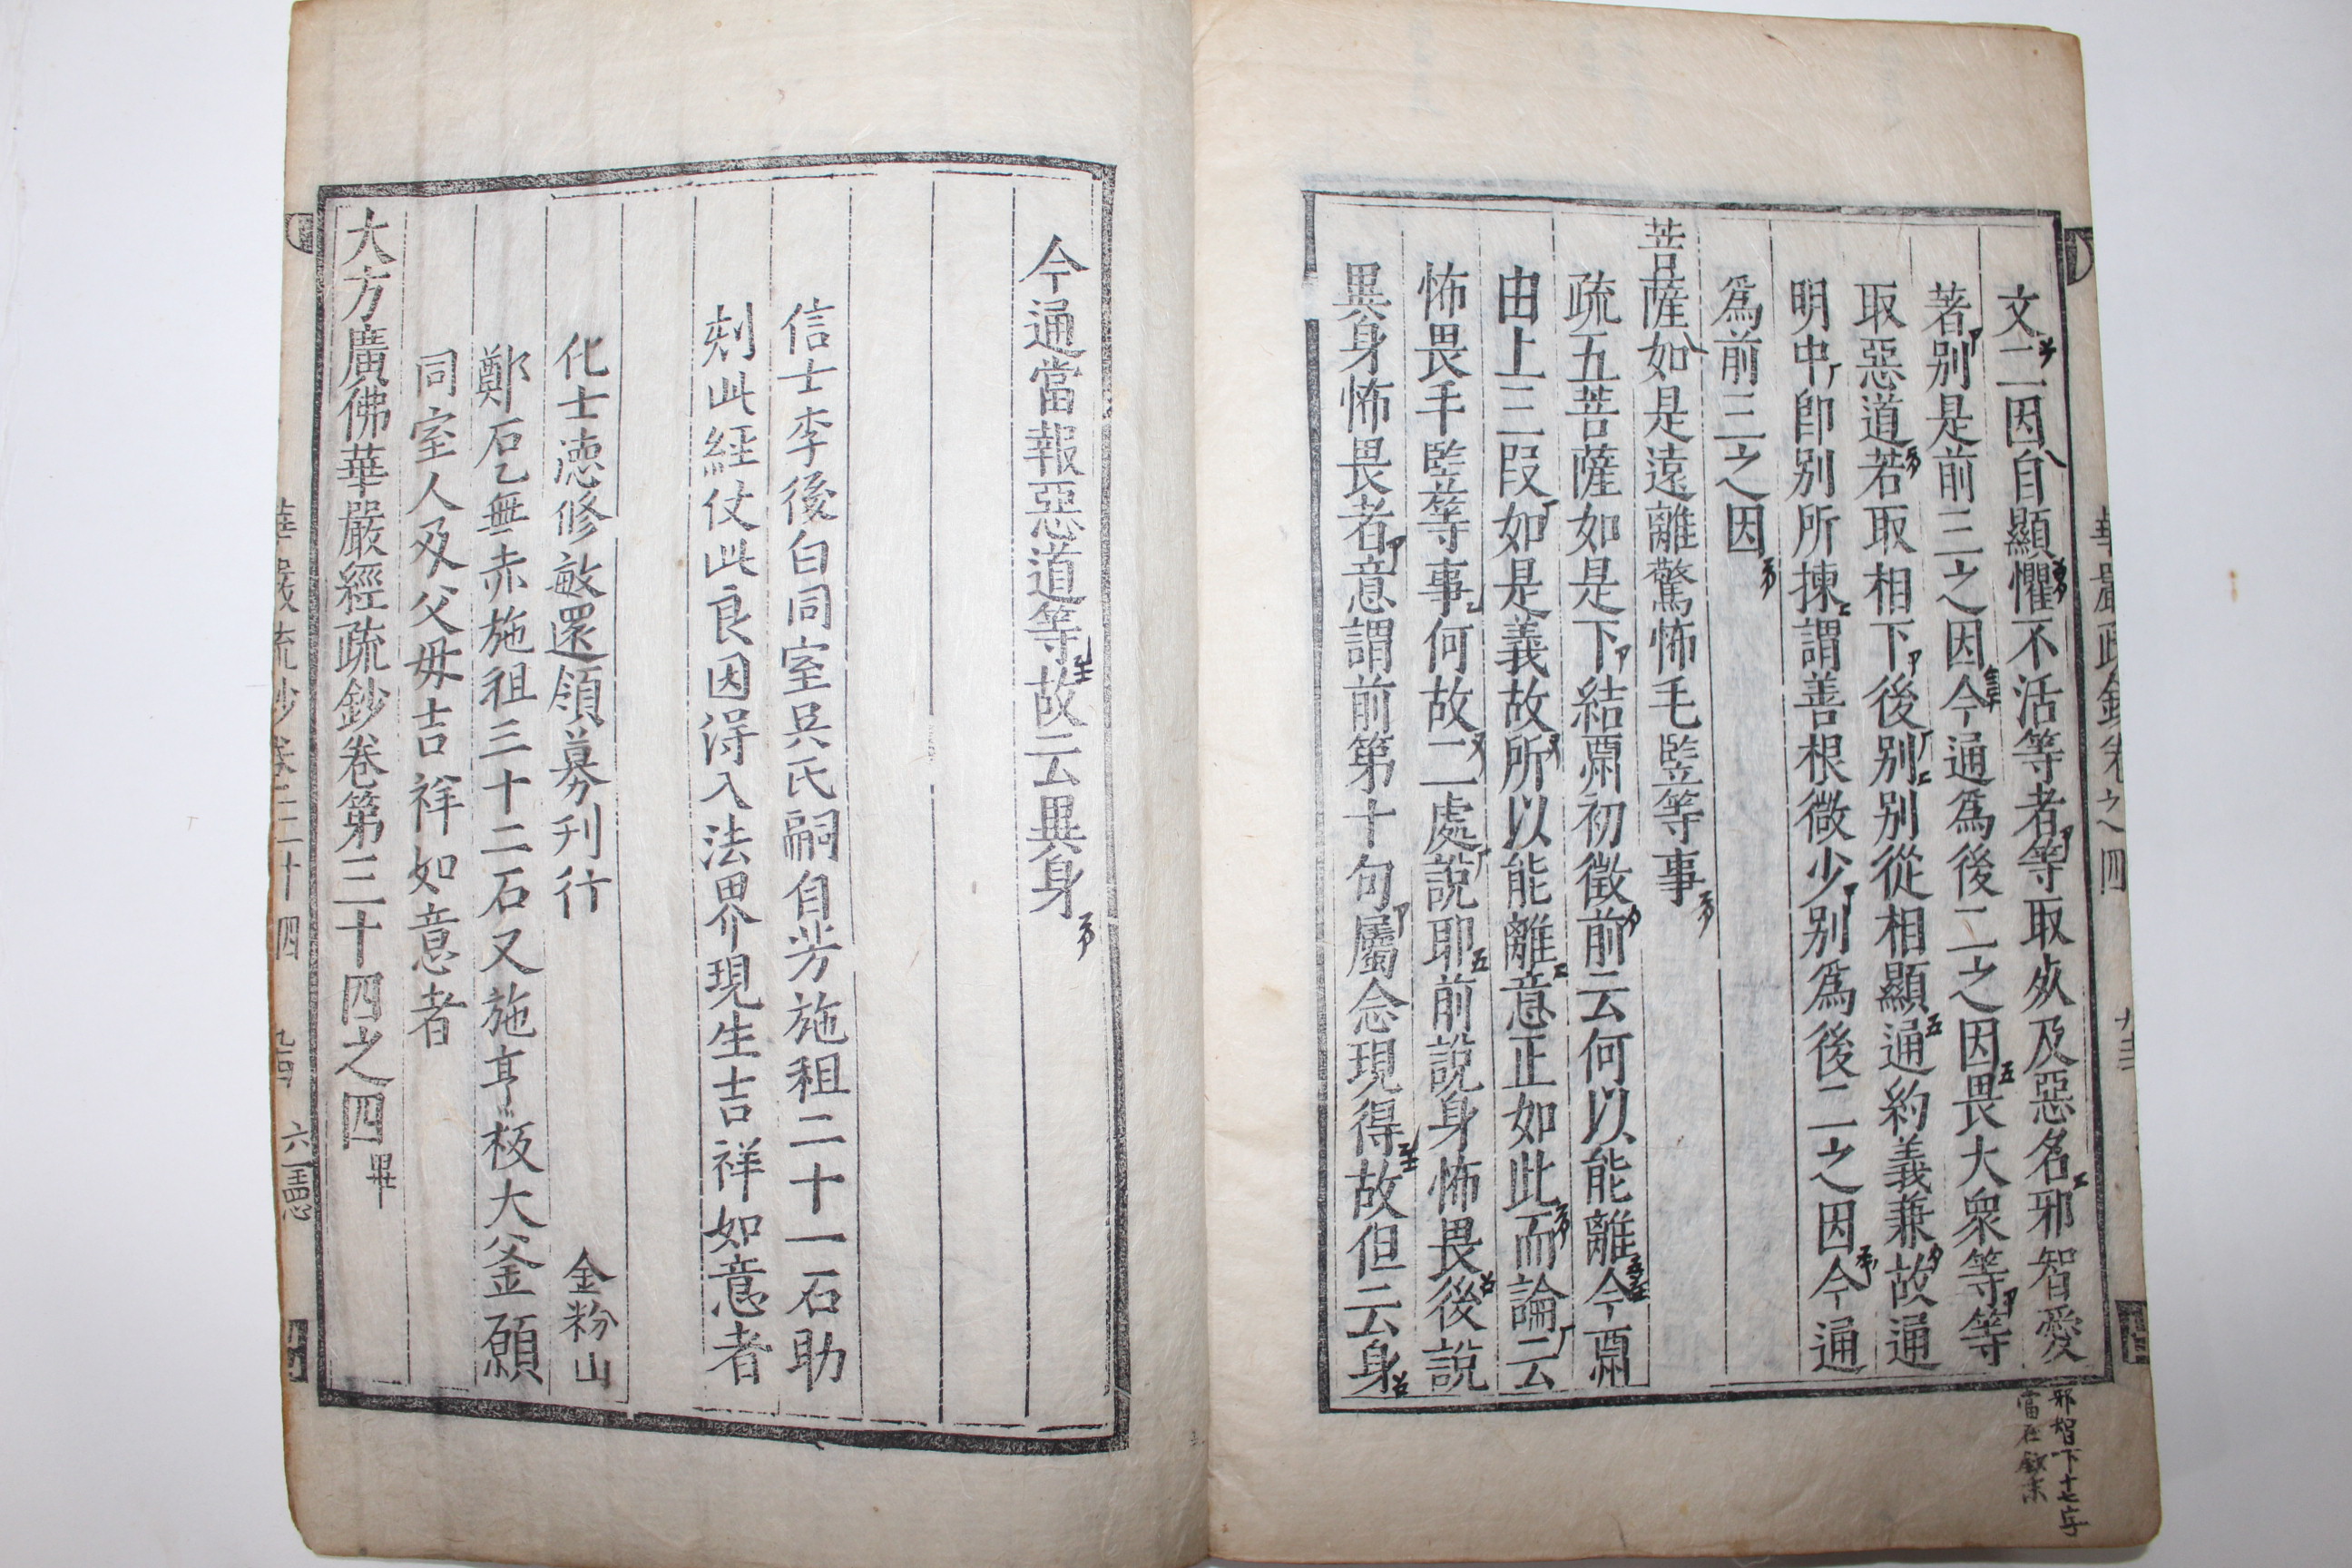 文二因自顯懼不活等者等取死及惡名邪智愛
著別是前三之因今通爲後二之因畏大衆等等
取惡道若取相下後別別從相顯通約義兼故通
明中卽別所揀謂善根微少別爲後二之因今通
爲前三之因
菩薩如是遠離驚怖毛竪等事
疏五菩薩如是下結酬初徵前云何以能離今酬
由上三段如是義故所以能離意正如此而論云
怖畏毛竪等事何故二處說耶前說身怖畏後說
異身怖畏者意謂前第十句屬念現得故但云身
邪智下十七字
當在鈔末
華嚴疏鈔卷之四
今通當報惡道等故云異身
信士李後白同室吳氏嗣自芳施租二十一石助
刻此経仗此良因淂入法界現生吉祥如意者
化士德修敏還領募刋行 金粉山
鄭石乙無赤施租三十二石又施亨板大釜願
同室人及父母吉祥如意者
大方廣佛華嚴經疏鈔卷第三十四之四 畢
華嚴疏鈔卷三十四